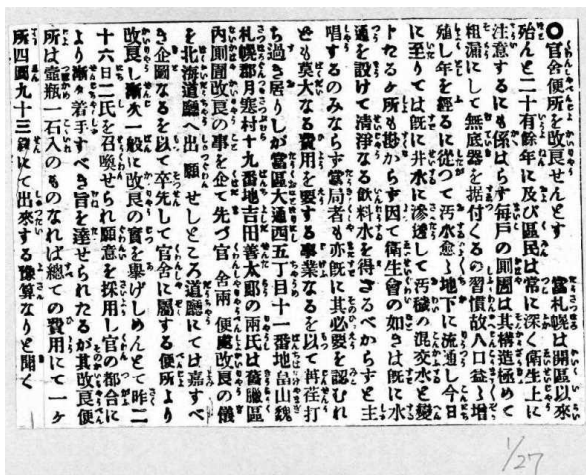 ○官舎便所を改良せんとす　當札幌は開區以來
殆んと二十有餘年に及び區民は常に深く衛生上に
注意するにも係はらず毎戸の圊圂は其構造極めて
粗漏にして無底器を据付くるの習慣故人口益〻增
殖し年を經るに從つて汚水愈〻地下に流通し今日
に至りては既に井水に滲透して汚穢の混交水と變
トたるヶ所も尠からず因て衛生會の如きは既に水
道を設けて清淨なる飲料水を得さるべからずと主
唱するのみならす當局者も亦既に其必要を認むれ
とも莫大なる費用を要する事業なるを以て荏苒打
ち過き居りしが當區大通西五丁目十一番地畠山魏
札幌郡月寒村十九番地吉田善太郎の兩氏は舊臘區
内圊圂改良の事を企て先づ官舎兩便處改良の儀
を北海道廳へ出願せしところ道廳にては嘉すべ
き企圖なるを以て卒先して官舎に屬する便所より
改良し漸次一般に改良の實を擧げしめんとて昨二
十六日二氏を召喚せられ願意を採用し官の都合に
より漸々着手すべき旨を達せられたるが其改良便
所は壺瓶一石入のものなれば總ての費用にて一ヶ
所四圓九十三錢にて出來する豫算なりと聞く
1/27